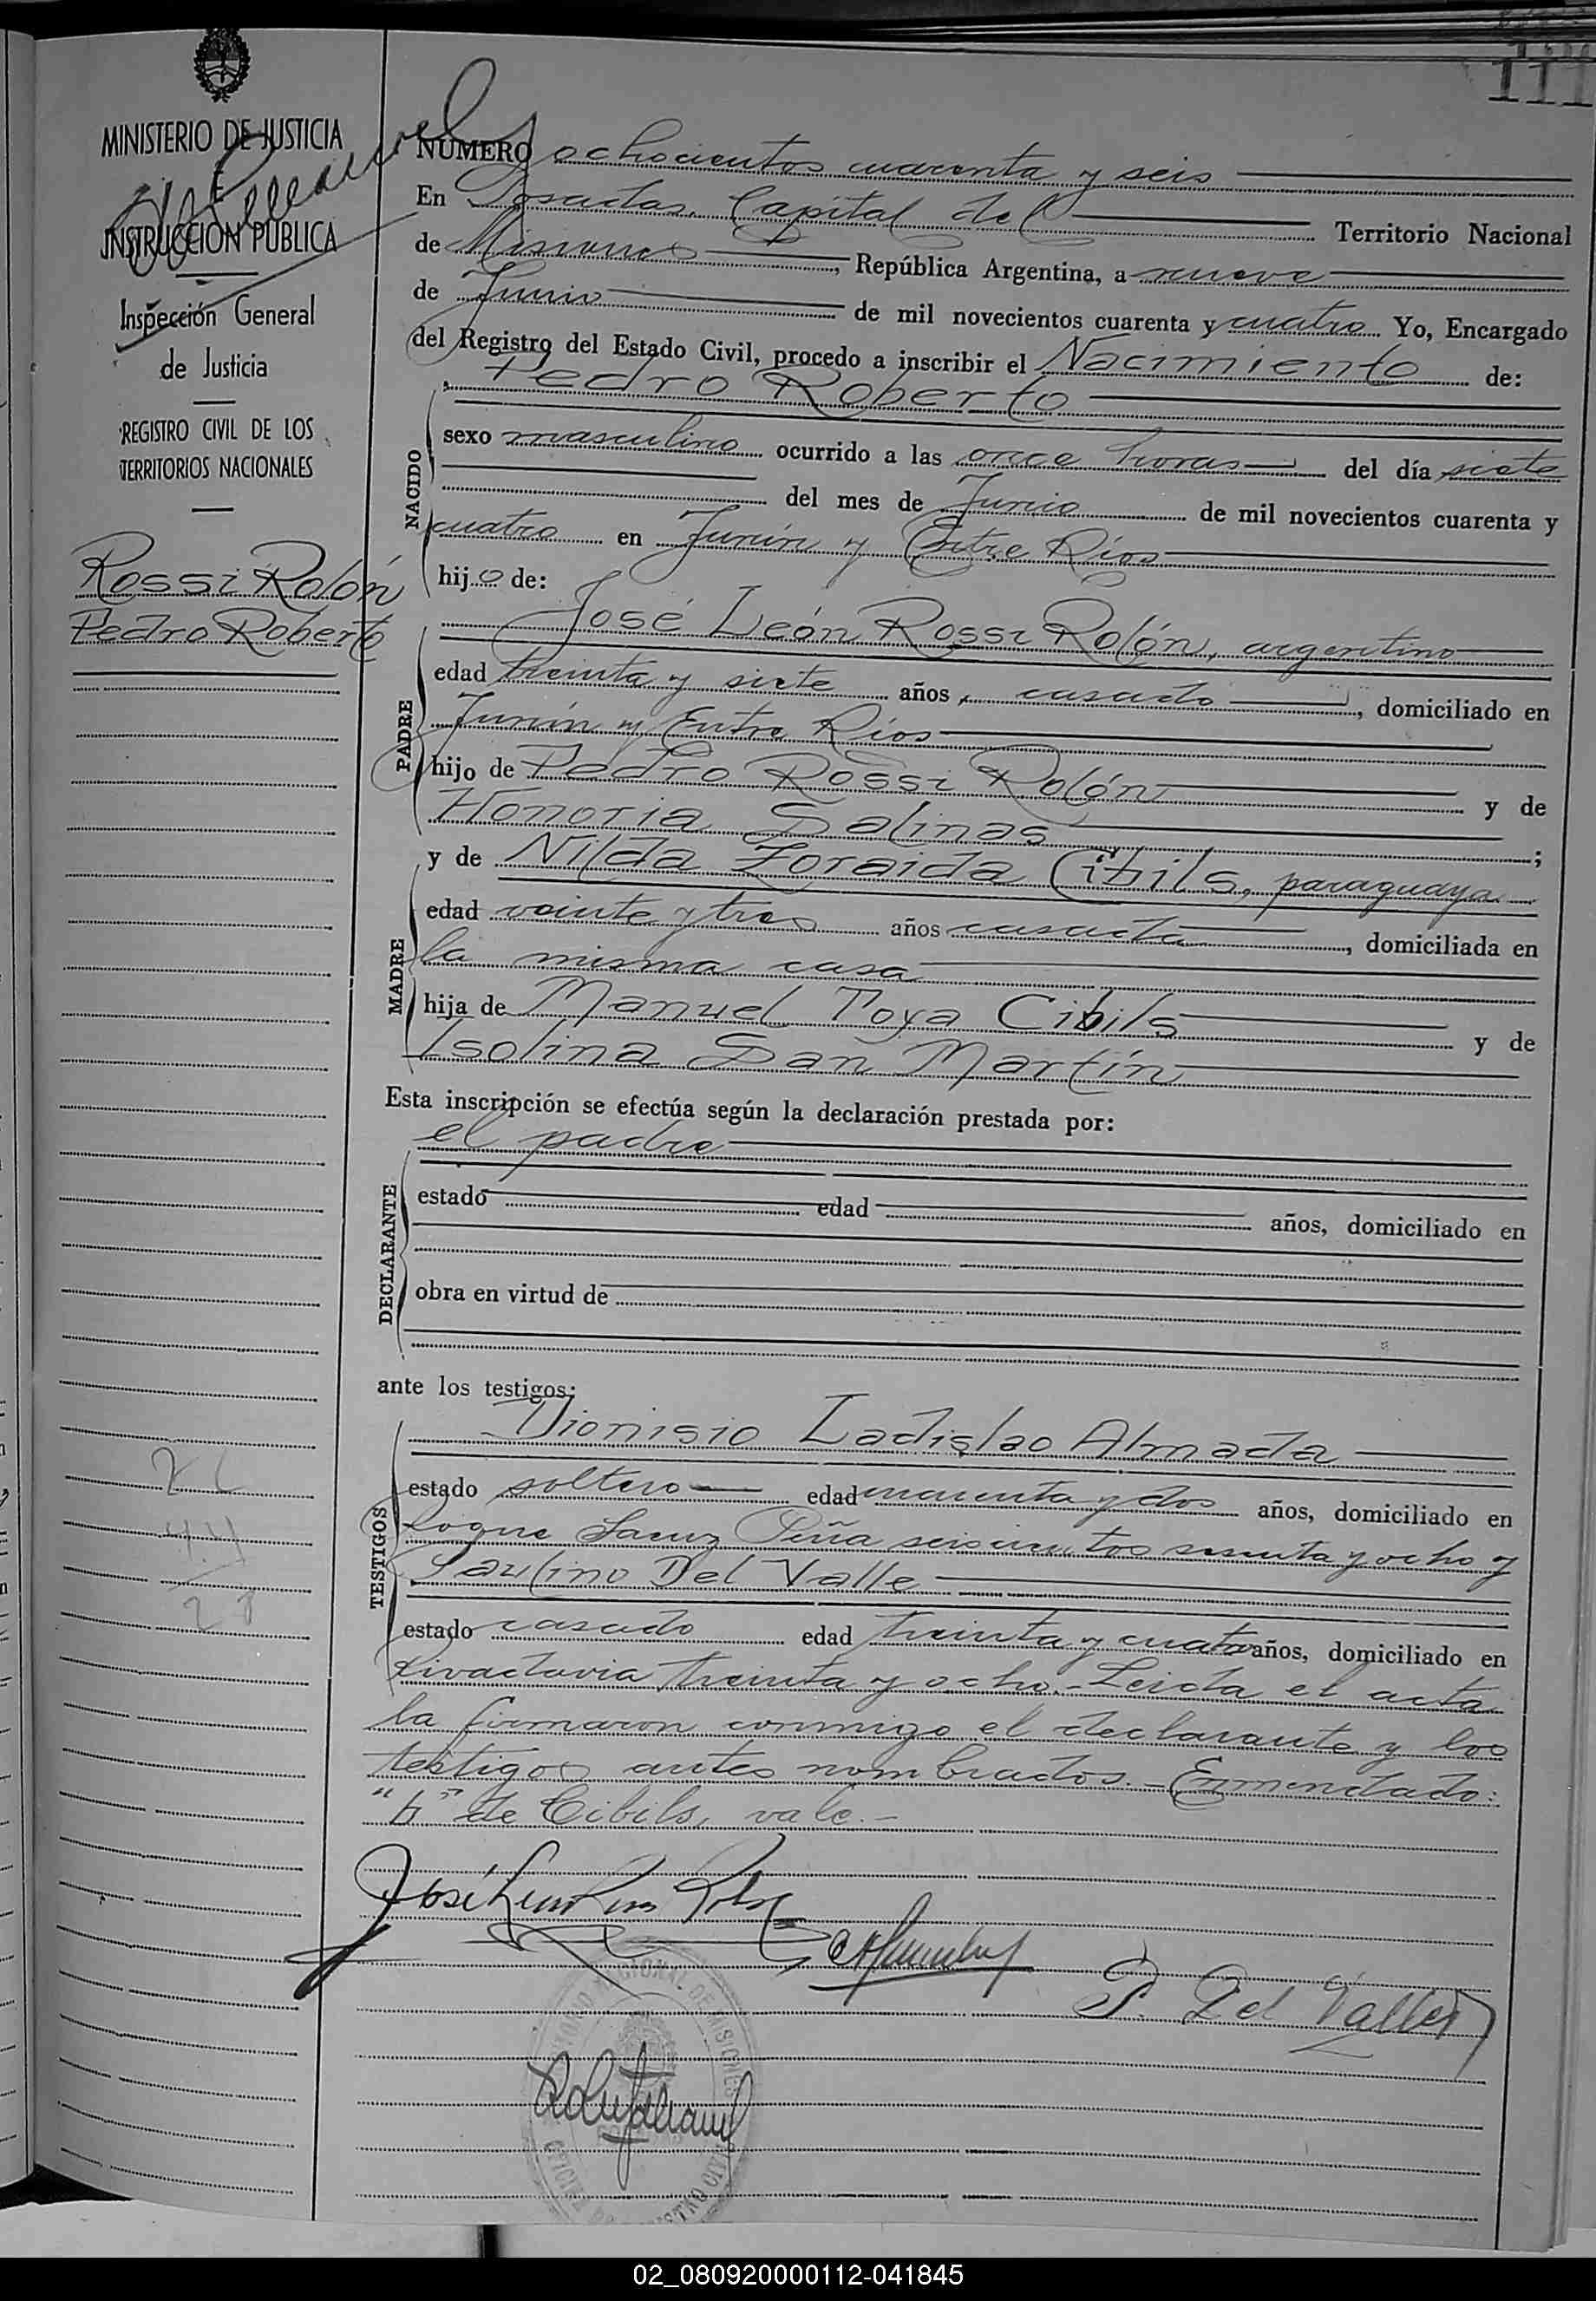 111
MINISTERIO DE JUSTICIA
E
INSTRUCCION PUBLICA
Inspección General
de Justicia
REGISTRO CIVIL DE LOS
TERRITORIOS NACIONALES
Rossi Rolón
Pedro Roberto
NUMERO ochocientos cuarenta y seis
En Posadas, Capital del Territorio Nacional
de Misiones, República Argentina, a nueve
de Junio de mil novecientos cuarenta y cuatro Yo, Encargado
del Registro del Estado Civil, procedo a inscribir el Nacimiento de:
Pedro Roberto
NACIDO
sexo masculino ocurrido a las once horas del día siete
del mes de Junio de mil novecientos cuarenta y
cuatro en Junín y Entre Ríos
hijo de:
José León Rossi Rolón, argentino
PADRE
edad treinta y siete años, casado, domiciliado en
Junín y Entre Ríos
hijo de Pedro Rossi Rolón y de
Honoria Salinas;
y de Nilda Zoraida Cibils, paraguaya
MADRE
edad veinte y tres años casada, domiciliada en
la misma casa
hija de Manuel Toya Cibils y de
Isolina San Martín
Esta inscripción se efectúa según la declaración prestada por:
el padre
DECLARANTE
estado edad años, domiciliado en
obra en virtud de
ante los testigos:
Dionisio Ladislao Almada
TESTIGOS
estado soltero edad cuarenta y dos años, domiciliado en
Roque Saenz Peña seiscientos sesenta y ocho y
Paulino Del Valle
estado casado edad treinta y cuatro años, domiciliado en
Rivadavia treinta y ocho.- Leida el acta
la firmaron conmigo el declarante y los
testigos antes nombrados.- Enmendado:
"b" de Cibils, vale.-
P. Del Valle
02_080920000112-041845